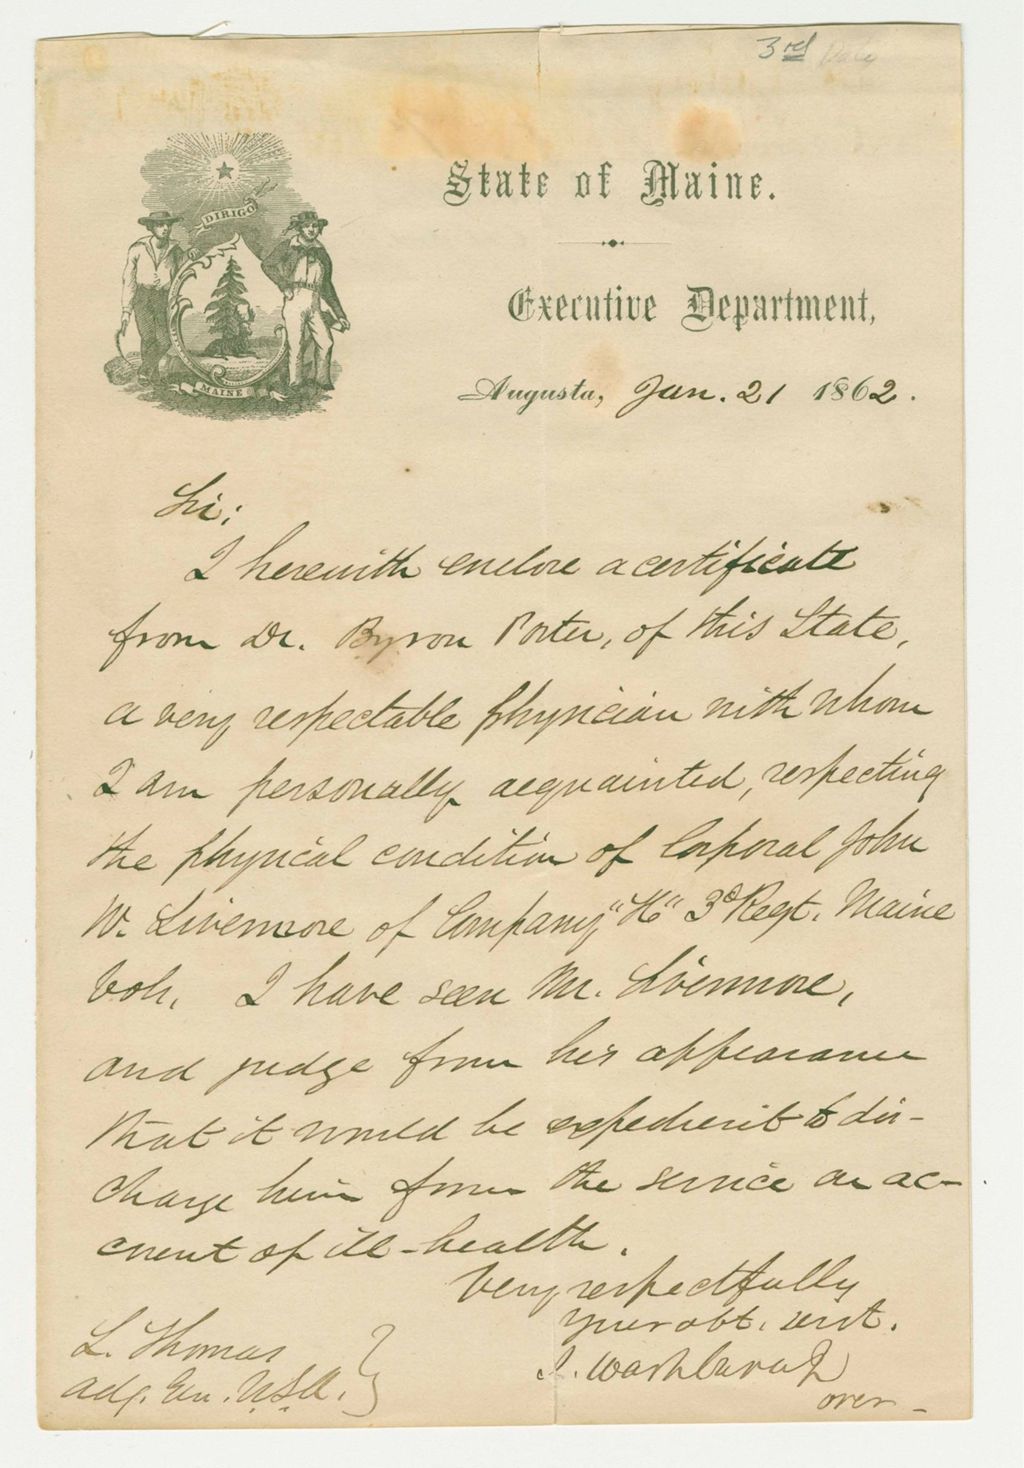 3rd
DIRIGO
MAINE
State of Maine.
Executive Department,
Augusta, Jan. 21 1862.
Sir:
I herewith enclose a certificate
from Dr. Byron Porter, of this State,
a very respectable physician with whom
I am personally acquainted, respecting
the physical condition of Corporal John
W. Livermore of Company "H" 3d Regt. Maine
Vols. I have seen Mr. Livermore,
and judge from his appearance
that it would be expedient to dis-
charge him from the service on ac-
count of ill-health.
Very respectfully
your obt. servt.
I. Washburn Jr
over -
L. Thomas
Adj. Gen. U.S.A.